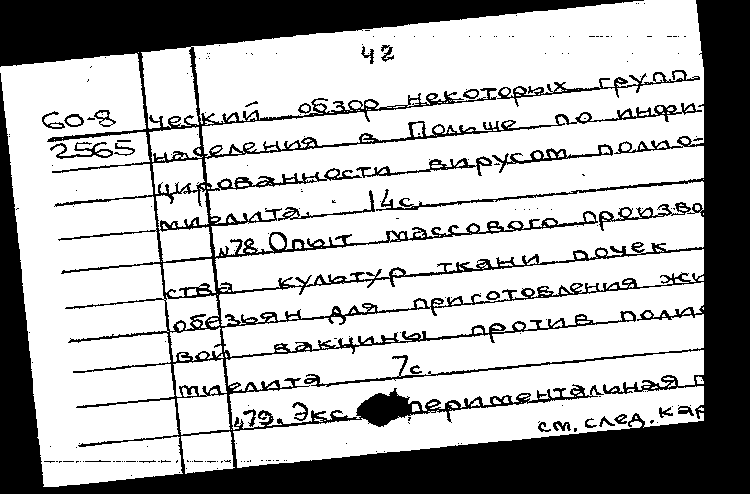 42
60-8
2565
ческий обзор некоторых групп
населения в Польше по инфи-
цированности вирусом полио-
миелита. 14с.
"78. Опыт массового произво
ства культур ткани почек
обезьян для приготовления жи
вой вакцины против полио
миелита 7с.
"79. Экс периментальная п
см. след. кар